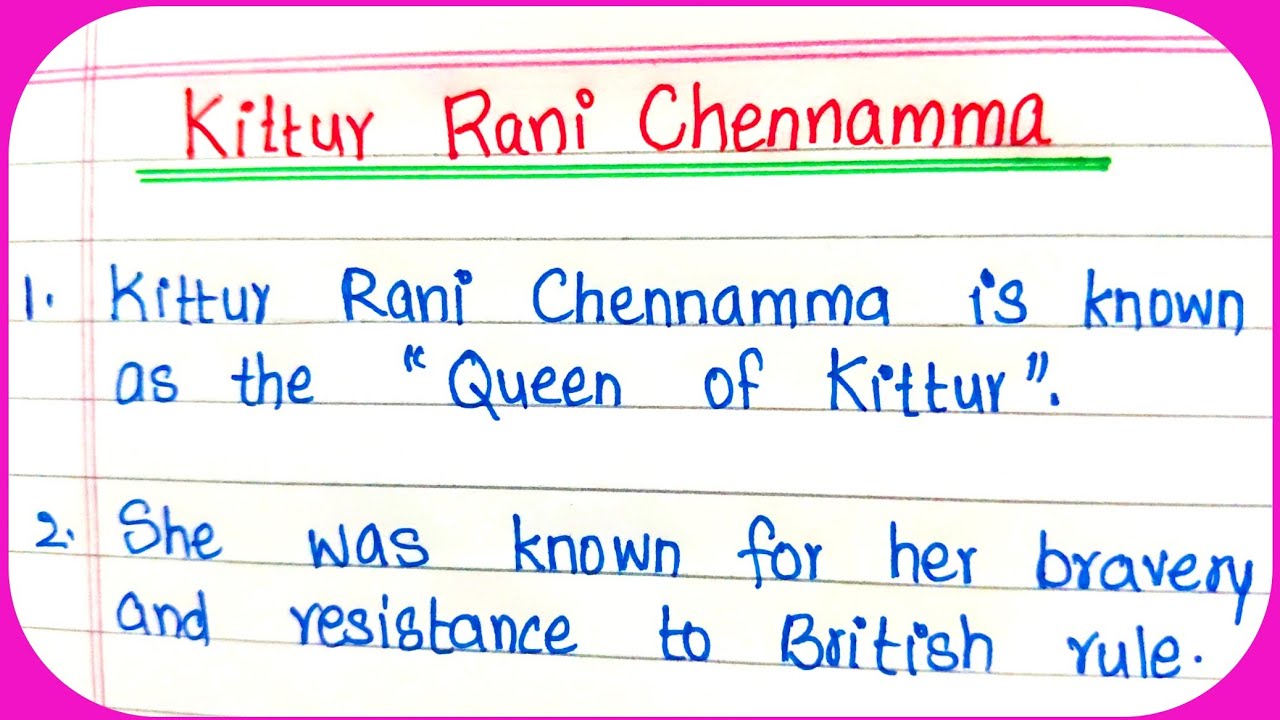 Kittur Rani Chennamma
1. Kittur Rani Chennamma is known
as the "Queen of Kittur".
2. She was known for her bravery
and resistance to British rule.